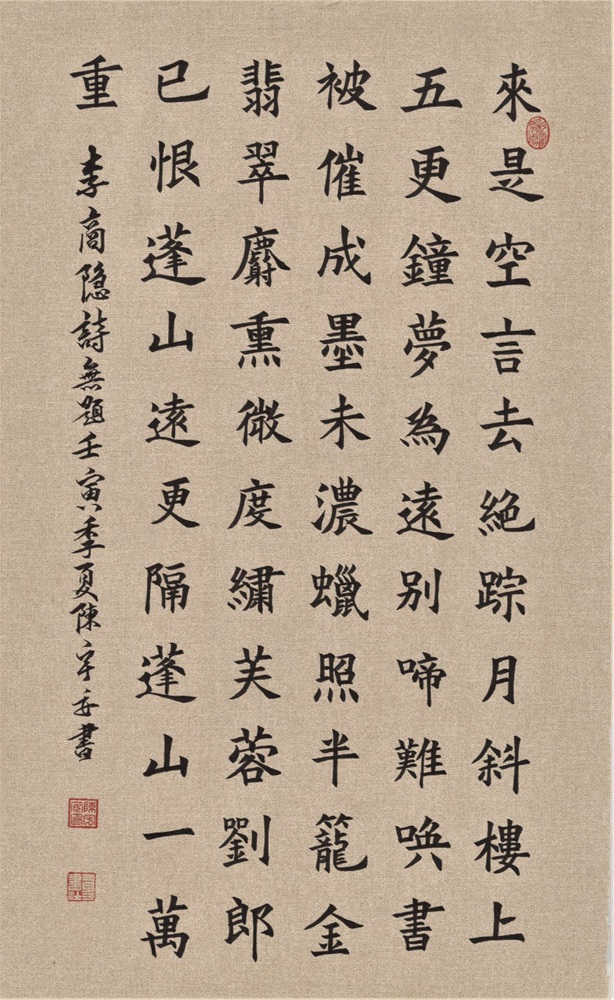 來是空言去絶踪月斜樓上
五更鐘夢為遠别啼難唤書
被催成墨未濃蠟照半籠金
翡翠麝熏微度繡芙蓉劉郎
已恨蓬山遠更隔蓬山一萬
重 李商隐詩無題壬寅季夏陳書